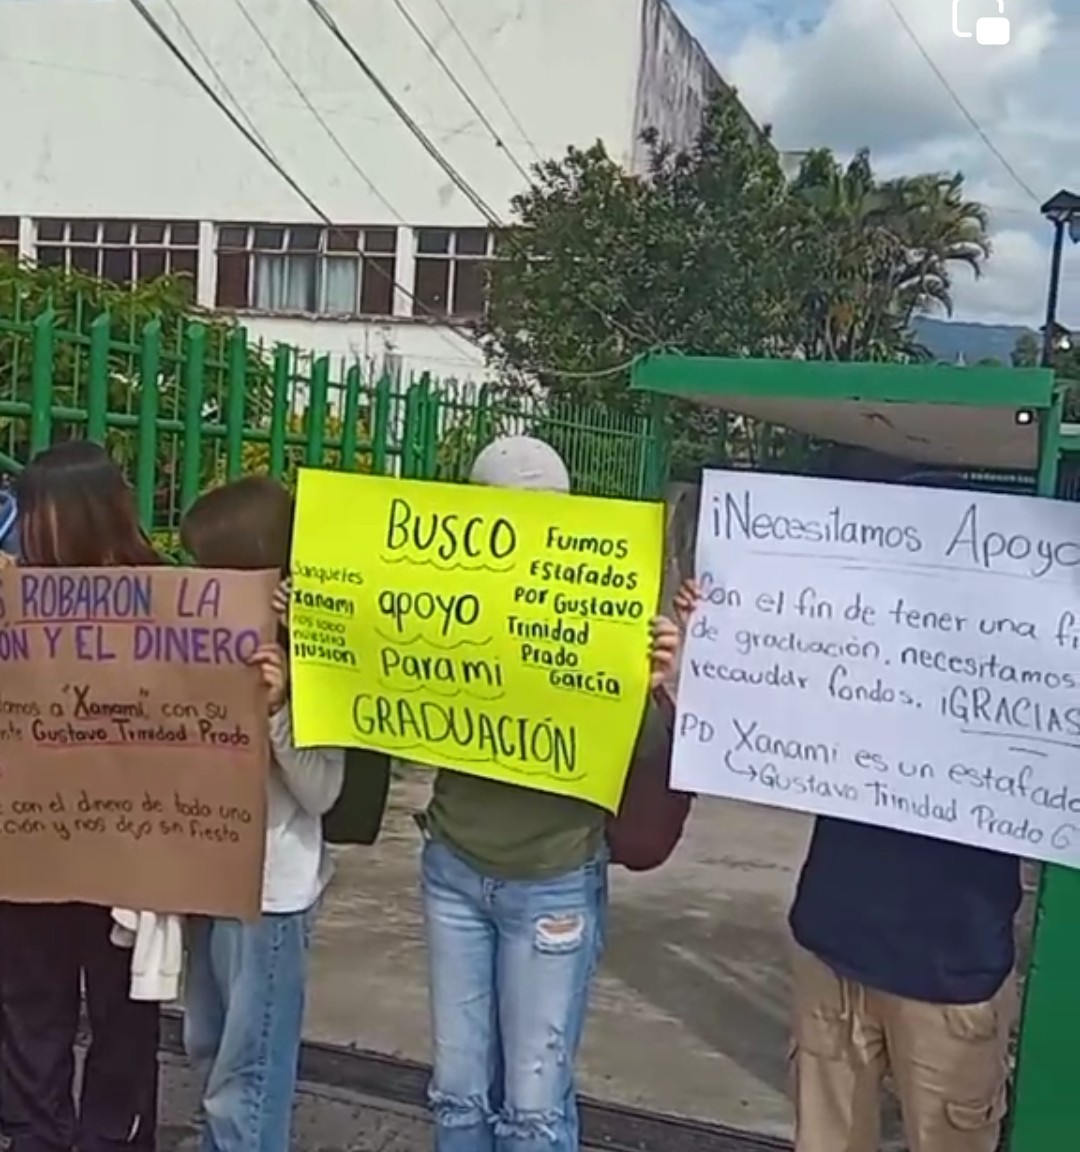 S ROBARON LA
ON Y EL DINERO
amos a "Xanami", con su
nte Gustavo Trinidad Prado
con el dinero de todo una
ción y nos dejo sin fiesta
BUSCO
apoyo
para mi
GRADUACIÓN
Banquetes
Xanami
nos robo
nuestra
ilusión
Fuimos
Estafados
por Gustavo
Trinidad
Prado
García
¡Necesitamos Apoyo
Con el fin de tener una fi
de graduación, necesitamos
recaudar fondos. ¡GRACIAS
PD Xanami es un estafado
↳Gustavo Trinidad Prado G